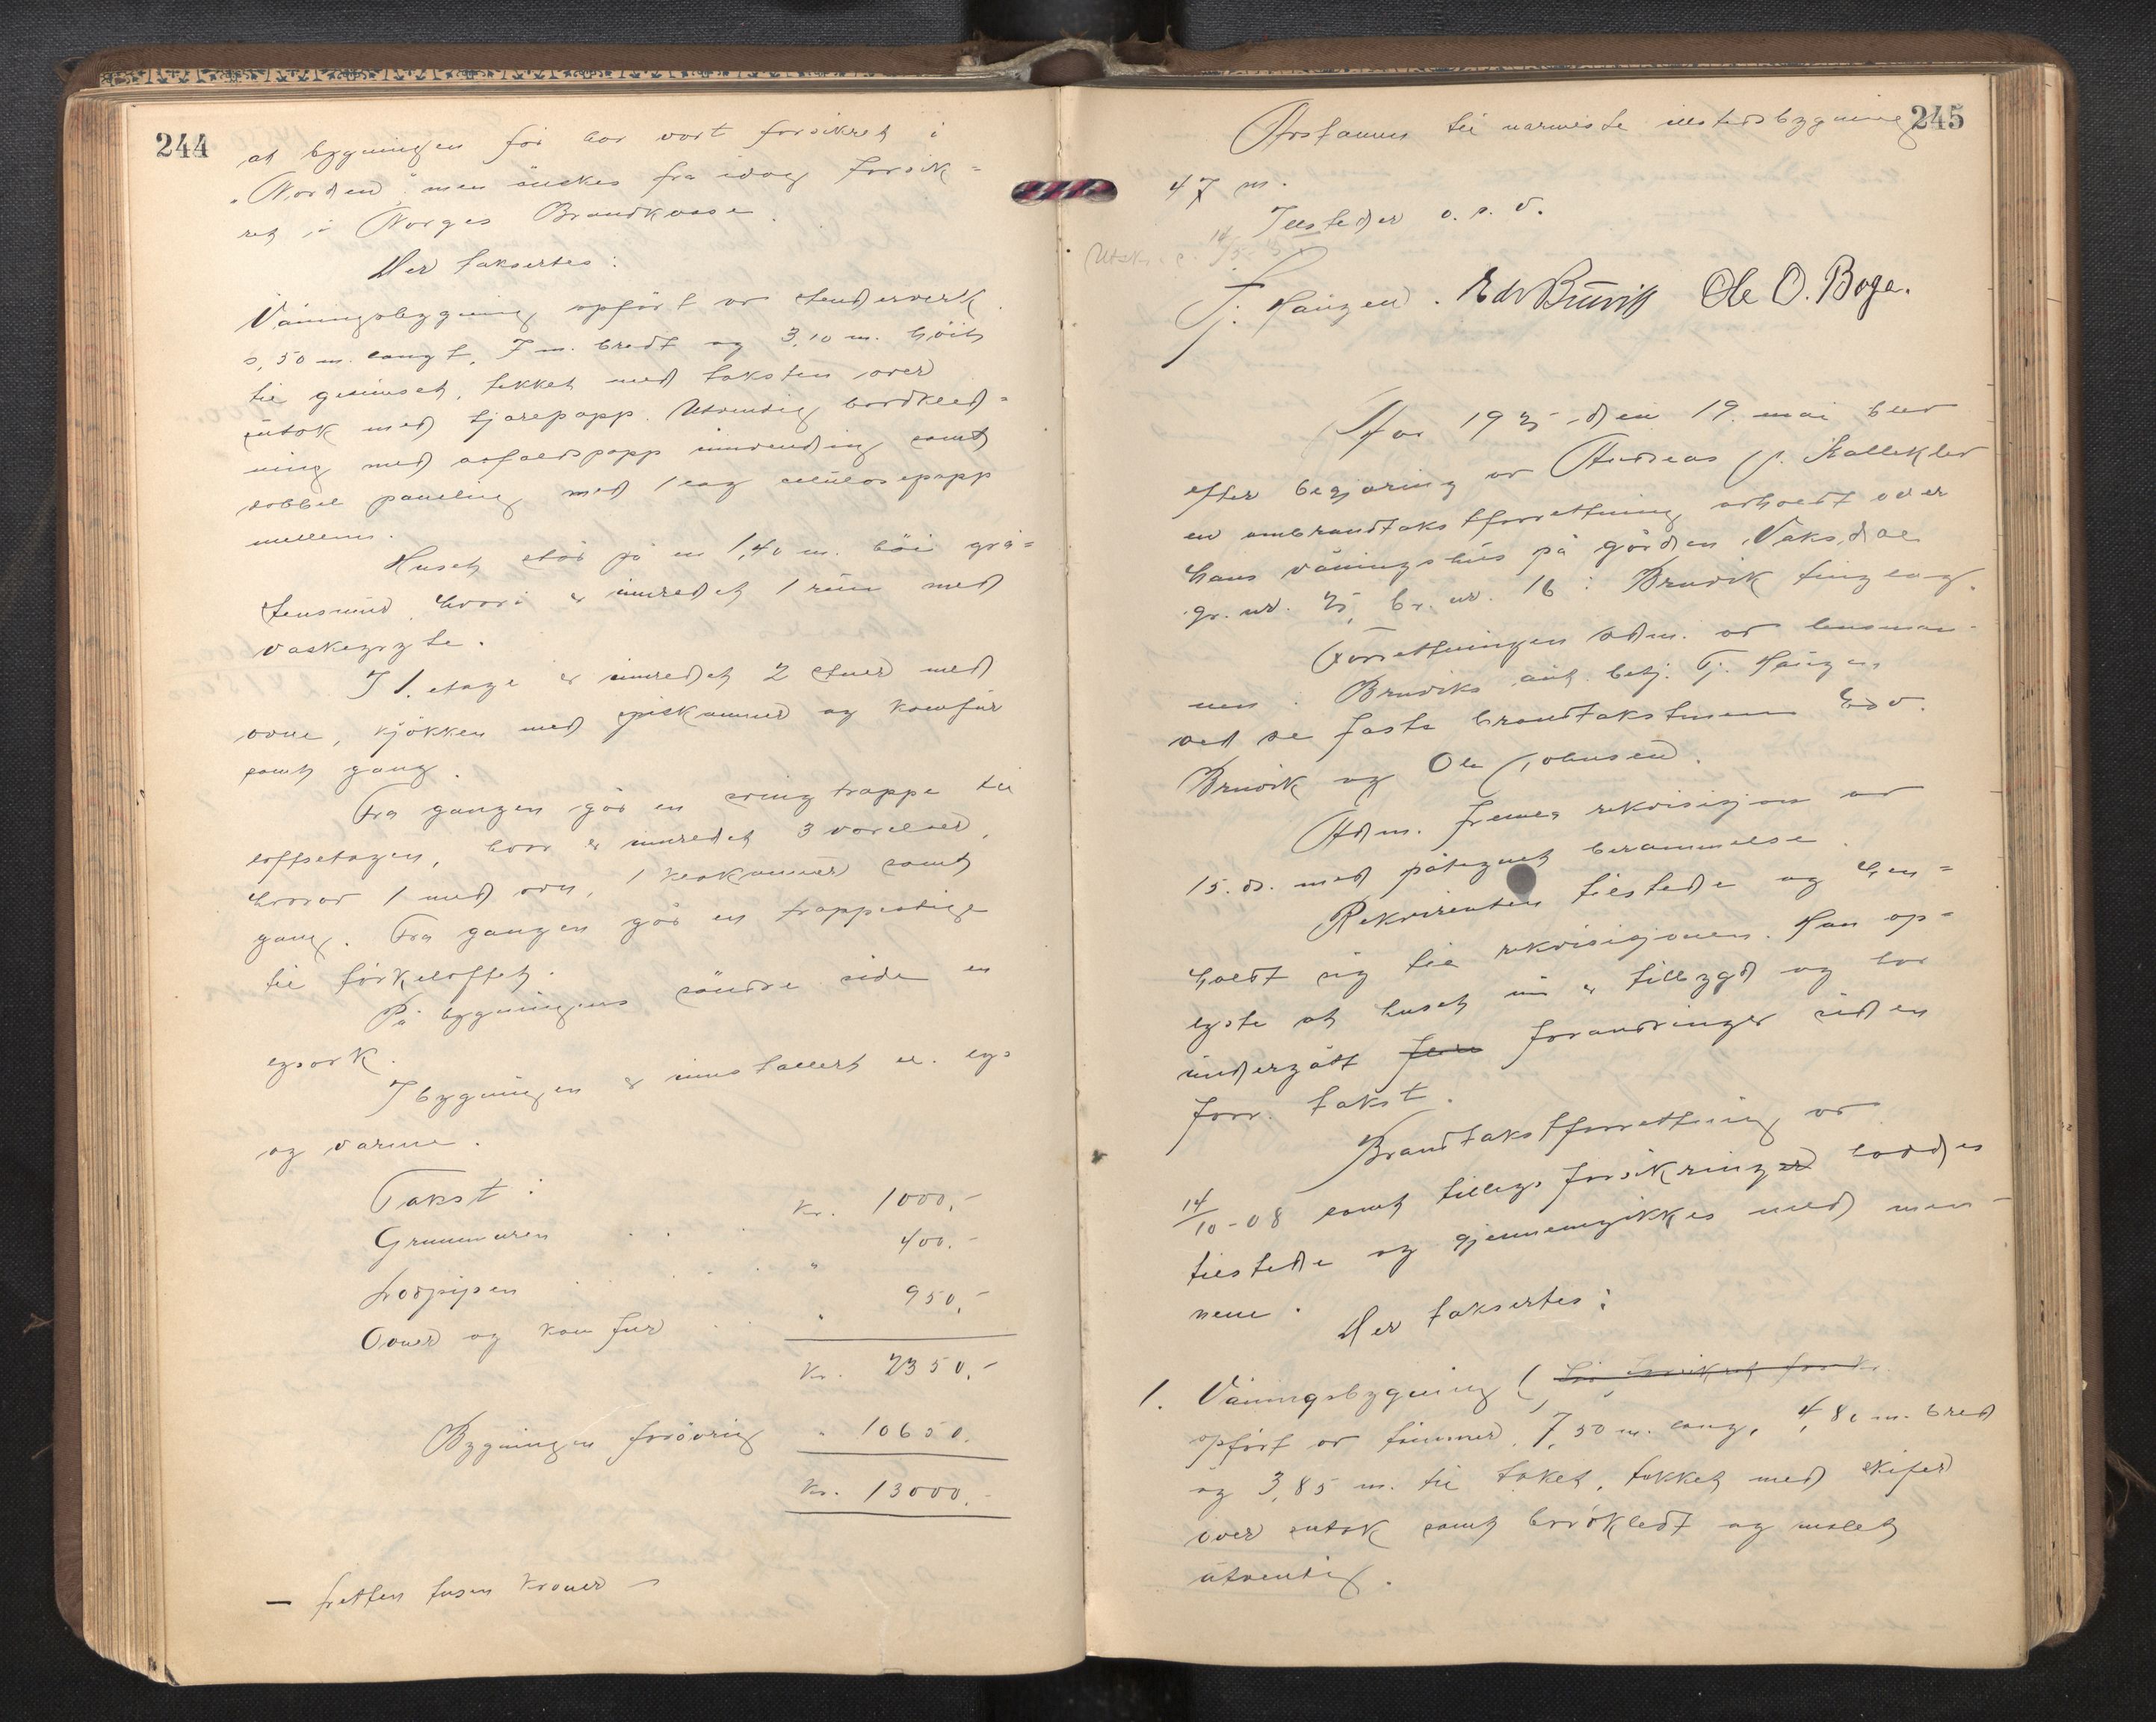 244
at bygningen før har vært forsikret i
"Norden", men ønskes fra idag forsik-
ret i Norges Brandkasse.
Der taksertes:
Våningsbygning opført av stenderverk
8,50 m. langt, 7 m. bredt og 3,10 m. høit
til gesimset, tekket med taksten over
sutak med tjærepapp. Utvendig bordkled-
ning med asfaltpapp innvending samt
dobbel paneling med 1 lag cellulosepapp
mellem.
Huset står på en 1,40 m. høi grå-
stensmur, hvori er innredet 1 rum med
vaskegryte.
I 1. etage er innredet 2 stuer med
ovne, kjøkken med spiskammer og komfur
samt gang.
Fra gangen går en svingtrappe til
loftsetagen, hvor er innredet 3 værelser,
hvorav 1 med ovn, 1 kleskammer samt
gang. Fra gangen går en trappestige
til tørkeloftet.
På bygningens søndre side en
bysark.
I bygningen er innstallert el. lys
og varme.
Takst:
Grunnmuren . . . kr. 1000,-
Lodpipen . . . " 400.-
Ovner og komfur . . " 950,-
Kr. 2350,-
Bygningen forøvrig " 10650.
Kr. 13000,-
- fretten tusen kroner -
245
Avstannen til nærmeste illstedsbygning
47 m.
Illsteder o. s. v.
Utskr.
F. Hauzen. Edv Bruvik Ole O. Boge.
År 1935 den 19. mai blev
efter begjæring av Andreas J. Kallekler
en ombrandtakstforretning avholdt over
hans våningshus på gården Vaksdal
gr. nr. 25, br. nr. 16 i Bruvik tinglag.
Forretningen adm. av lensman-
nen i Bruviks aut. betj. Fj. Hauzen
ved de faste brandtakstmenn Edv.
Bruvik og Ole Johnsen.
Adm. fremla rekvisisjon av
15. ds. med påtegnet berammelse.
Rekvirenten tilstede og hen-
holdt sig til rekvisisjonen. Han op-
lyste at huset nu er tilbygd og har
undergått flere forandringer siden
forr. takst.
Brandtakstforretning av
14/10-08 samt tilleggsforsikringer havdes
tilstede og gjennemgikkes med men-
nene.
Der taksertes:
1. Våningsbygning (før forsikret for kr.
opført av tømmer, 7,50 m. lang, 4,80 m. bred
og 3,85 m. til taket, tekket med skifer
over sutak samt bordkledt og malet
utvendig.